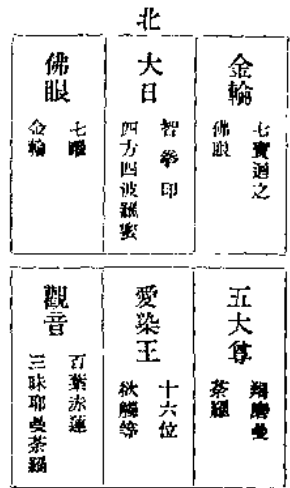 北
金輪
七寶遶之
佛眼
大日
智拳印
四方四波羅蜜
佛眼
七曜
金輪
五大尊
羯磨曼
荼羅
愛染王
十六位
欲觸等
觀音
百葉赤蓮
三昧耶曼荼羅